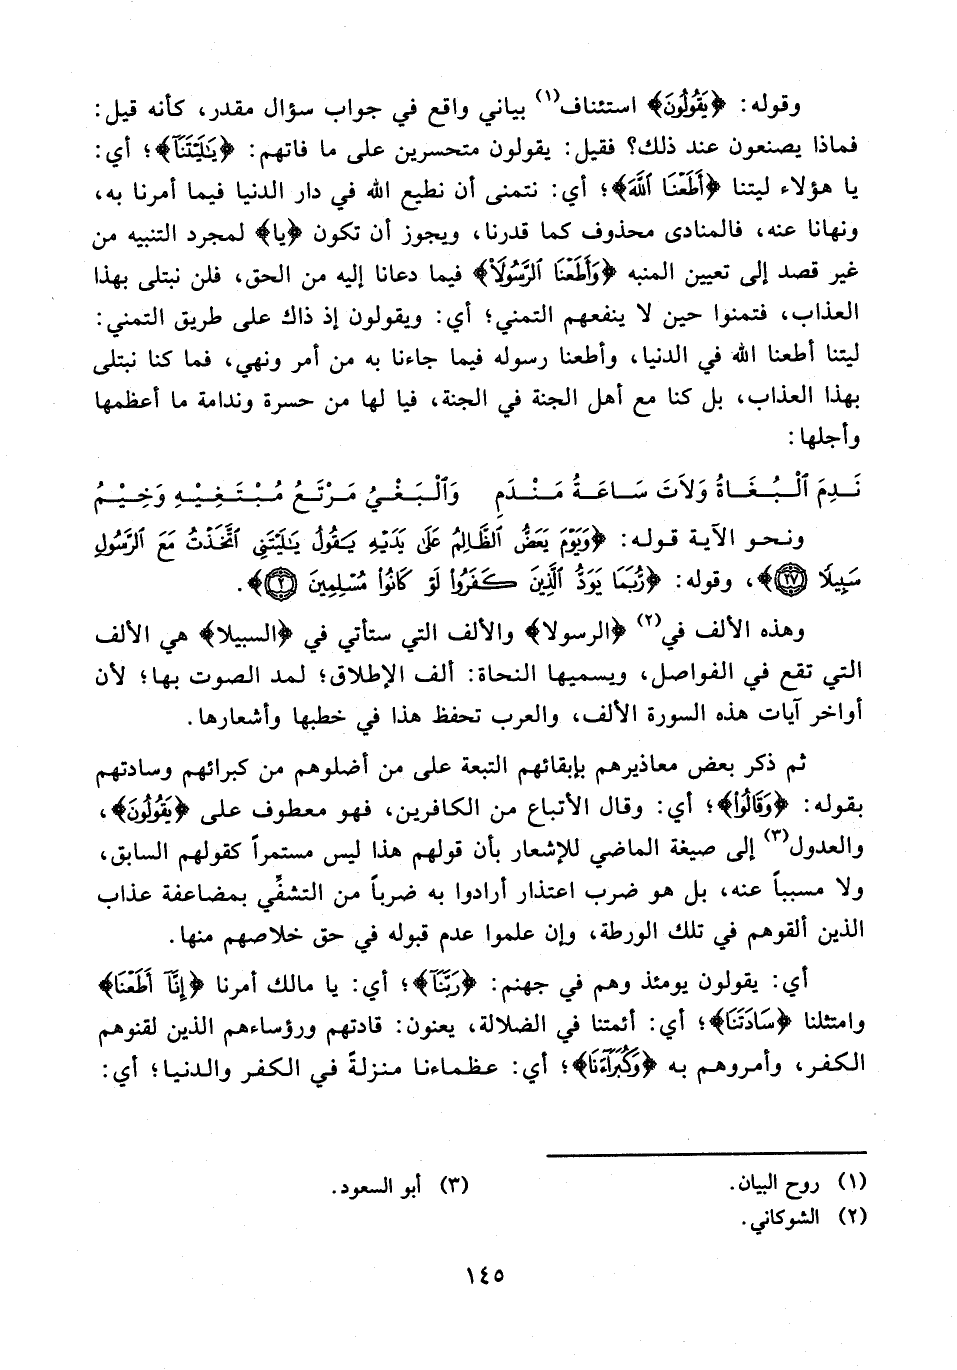 وقوله: ﴿يَقُولُونَ﴾ استئناف(١) بياني واقع في جواب سؤال مقدر، كأنه قيل:
فماذا يصنعون عند ذلك؟ فقيل: يقولون متحسرين على ما فاتهم: ﴿يَٰلَيْتَنَآ﴾؛ أي:
يا هؤلاء ليتنا ﴿أَطَعْنَا ٱللَّهَ﴾؛ أي: نتمنى أن نطيع الله في دار الدنيا فيما أمرنا به،
ونهانا عنه، فالمنادى محذوف كما قدرنا، ويجوز أن تكون ﴿يا﴾ لمجرد التنبيه من
غير قصد إلى تعيين المنبه ﴿وَأَطَعْنَا ٱلرَّسُولَا۠﴾ فيما دعانا إليه من الحق، فلن نبتلى بهذا
العذاب، فتمنوا حين لا ينفعهم التمني؛ أي: ويقولون إذ ذاك على طريق التمني:
ليتنا أطعنا الله في الدنيا، وأطعنا رسوله فيما جاءنا به من أمر ونهي، فما كنا نبتلى
بهذا العذاب، بل كنا مع أهل الجنة في الجنة، فيا لها من حسرة وندامة ما أعظمها
وأجلها:
نَدِمَ ٱلْبُغَاةُ وَلَاتَ سَاعَةُ مَنْدَمِ وَٱلْبَغْيُ مَرْتَعُ مُبْتَغِيْهِ وَخِيْمُ
ونحو الآية قوله: ﴿وَيَوْمَ يَعَضُّ ٱلظَّالِمُ عَلَىٰ يَدَيْهِ يَقُولُ يَٰلَيْتَنِى ٱتَّخَذْتُ مَعَ ٱلرَّسُولِ
سَبِيلًا ٢٧﴾، وقوله: ﴿رُّبَمَا يَوَدُّ ٱلَّذِينَ كَفَرُوا۟ لَوْ كَانُوا۟ مُسْلِمِينَ ٢﴾.
وهذه الألف في(٢) ﴿الرسولا﴾ والألف التي ستأتي في ﴿السبيلا﴾ هي الألف
التي تقع في الفواصل، ويسميها النحاة: ألف الإطلاق؛ لمد الصوت بها؛ لأن
أواخر آيات هذه السورة الألف، والعرب تحفظ هذا في خطبها وأشعارها.
ثم ذكر بعض معاذيرهم بإبقائهم التبعة على من أضلوهم من كبرائهم وسادتهم
بقوله: ﴿وَقَالُوا۟﴾؛ أي: وقال الأتباع من الكافرين، فهو معطوف على ﴿يَقُولُونَ﴾،
والعدول(٣) إلى صيغة الماضي للإشعار بأن قولهم هذا ليس مستمراً كقولهم السابق،
ولا مسبباً عنه، بل هو ضرب اعتذار أرادوا به ضرباً من التشفِّي بمضاعفة عذاب
الذين ألقوهم في تلك الورطة، وإن علموا عدم قبوله في حق خلاصهم منها.
أي: يقولون يومئذ وهم في جهنم: ﴿رَبَّنَآ﴾؛ أي: يا مالك أمرنا ﴿إِنَّآ أَطَعْنَا﴾
وامتثلنا ﴿سَادَتَنَا﴾؛ أي: أئمتنا في الضلالة، يعنون: قادتهم ورؤساءهم الذين لقنوهم
الكفر، وأمروهم به ﴿وَكُبَرَآءَنَا﴾؛ أي: عظماءنا منزلةً في الكفر والدنيا؛ أي:
(١) روح البيان.
(٢) الشوكاني.
(٣) أبو السعود.
١٤٥